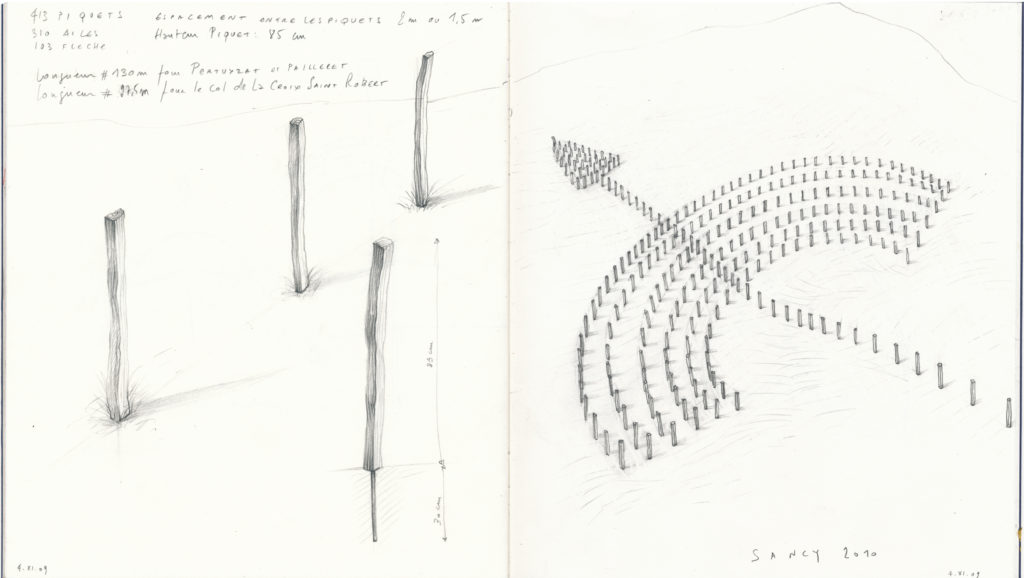 413 PIQUETS
310 AILES
103 FLECHE
ESPACEMENT ENTRE LES PIQUETS 2m ou 1,5 m
Hauteur Piquet : 85 cm
Longueur # 130m pour PERTUYZAT et PAILLERET
Longueur # 97,5m pour le col de La CROIX SAINT ROBERT
85 cm
30 cm
4.XI.09
SANCY 2010
4.XI.09